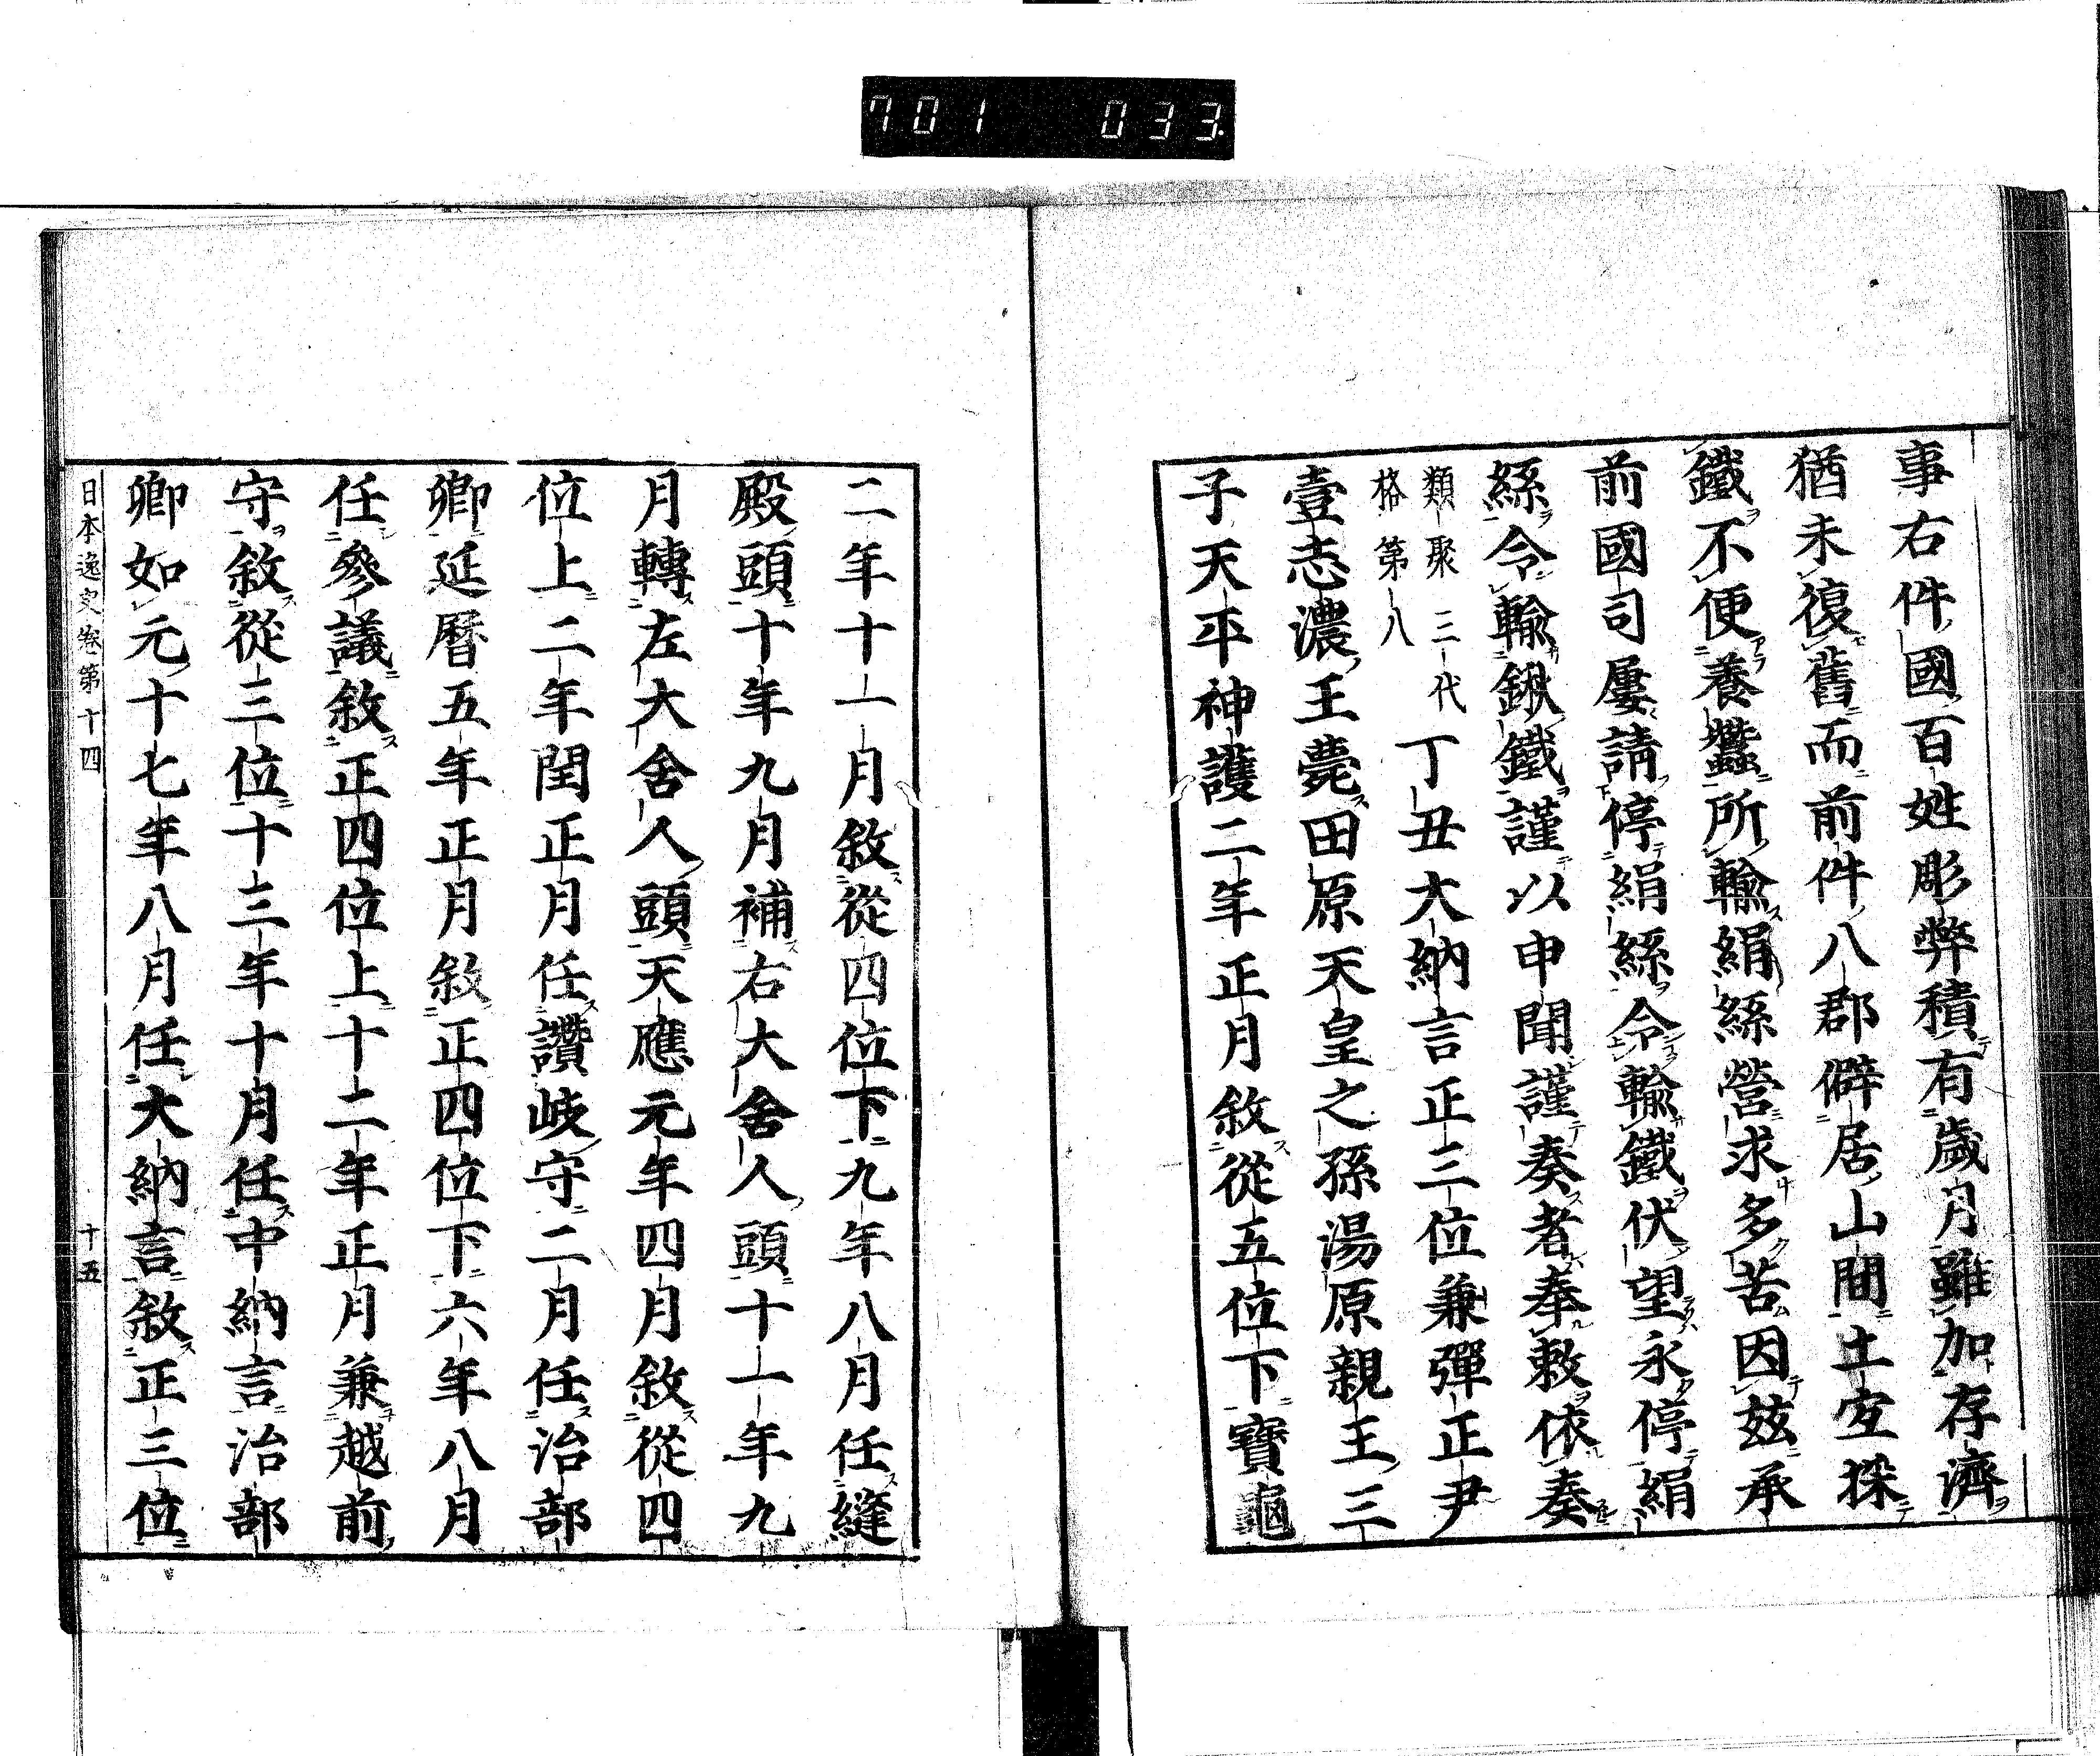 701 033
事右件國百姓彫弊積有歲月雖加存濟
猶未復舊而前件八郡僻居山間土宜採
鐵不便養蠶所輸絹絲營求多苦因玆承
前國司屢請停絹絲令輸鐵伏望永停絹
絲令輸鍬鐵謹以申聞謹奏者奉敕依奏
類聚三代
格第八
丁丑大納言正三位兼彈正尹
壹志濃王薨田原天皇之孫湯原親王三
子天平神護二年正月敘從五位下寶龜
二年十一月敘從四位下九年八月任縫
殿頭十年九月補右大舍人頭十一年九
月轉左大舍人頭天應元年四月敘從四
位上二年閏正月任讚岐守二月任治部
卿延曆五年正月敘正四位下六年八月
任參議敘正四位上十二年正月兼越前
守敘從三位十三年十月任中納言治部
卿如元十七年八月任大納言敘正三位
日本逸史卷第十四 十五